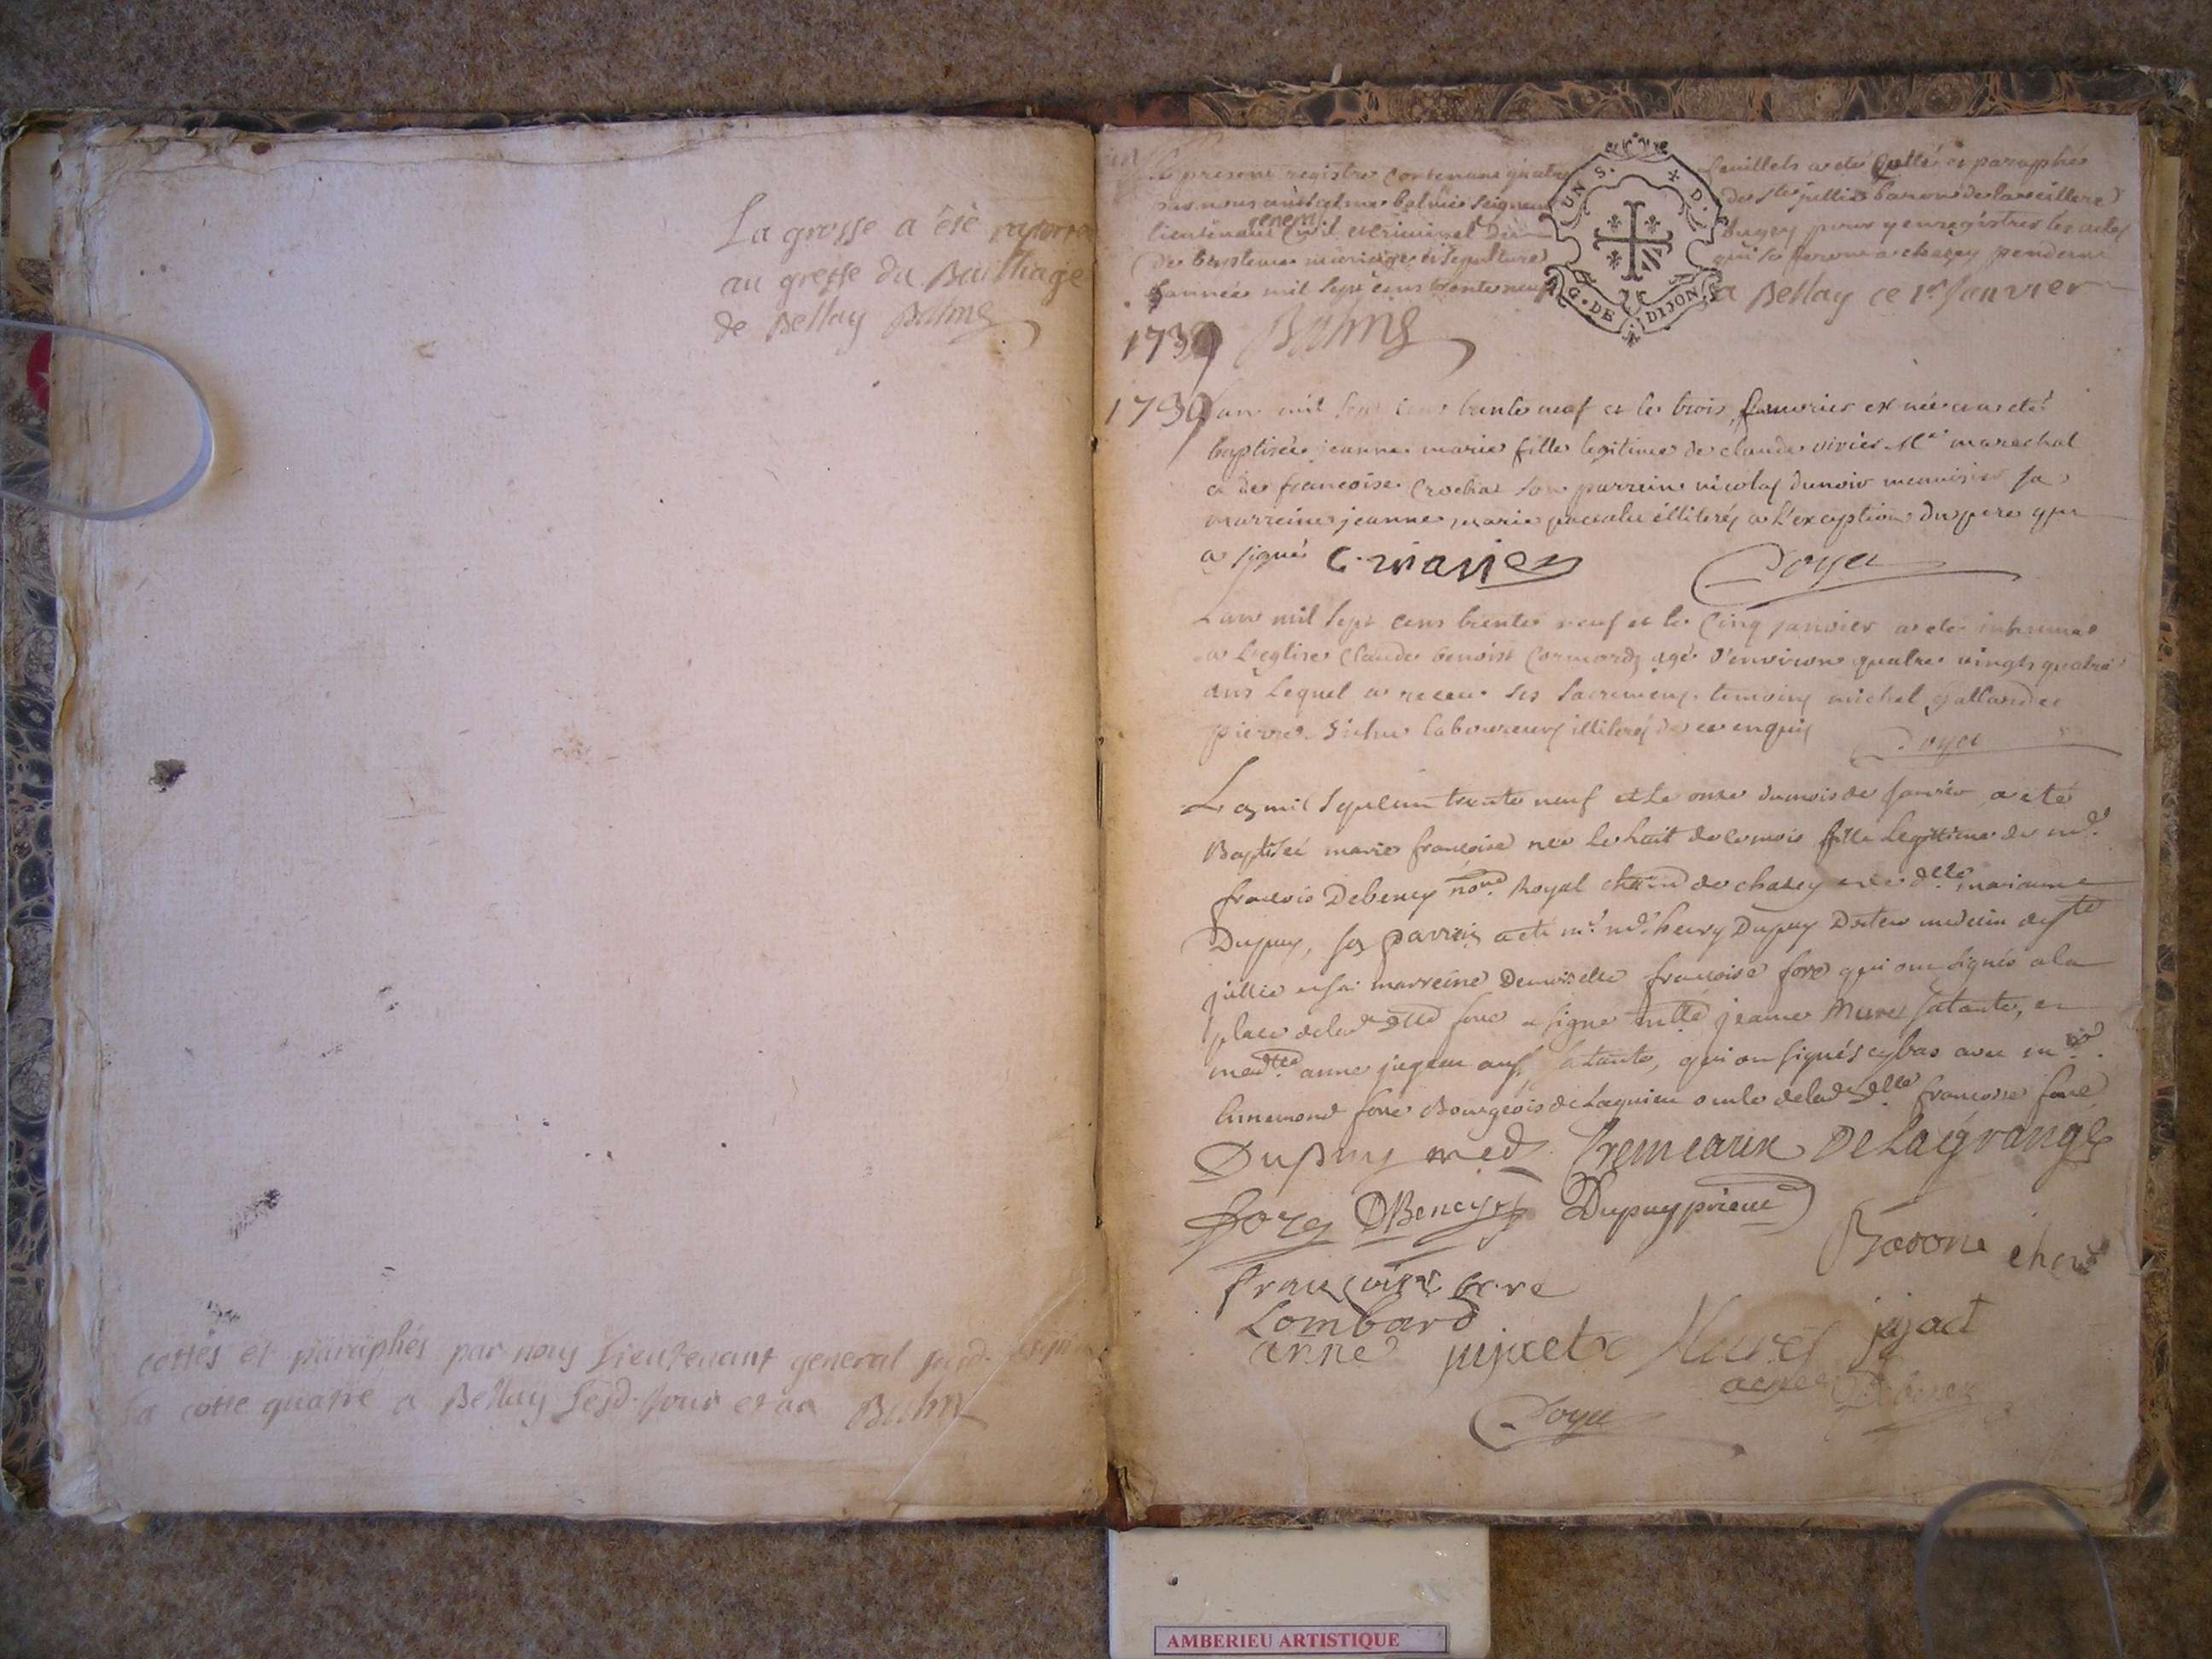 La grosse a été raporté
au greffe du Bailliage
de Bellay Balme
cottés et paraphés par nous Lieutenant general susd.
la cotte quatre a Bellay lesd. jour et an Balme
Le present registre contenant quatre feuillets a eté Cotté et paraphé
par nous balme seigneur de Ste jullie baron de
general
lieutenant Civil et criminel du bugey pour y enregistrer les actes
de bapteme mariage et sepulture qui se feront a chazey pendant
l'année mil sept cens trente neuf a Bellay ce 1er Janvier
1739 Balme
UN S. D.
G. DE DIJON
1739 L'an mil sept cens trente neuf et le trois Janvier est née et a eté
baptisée jeanne marie fille legitime de claude vivier Me marechal
et de francoise Crochat son parrein nicolas dunoir menuisier sa
marreine jeanne marie illiterés a l'exception du pere qui
a signé C. vivier Doyet
L'an mil sept cens trente neuf et le Cinq janvier a eté inhumé
a L'eglise Claude benoist Cormord agé d'environ quatre vingts quatre
ans Lequel a receu ses sacremens temoins michel Galland et
pierre laboureurs illiterés de ce enquis
Doyet
L'an mil sept cent trente neuf et le onze du mois de Janvier a eté
Baptisée marie francoise née le huit de ce mois fille Legittime de
francois Debeney Royal de chazey et de delle marianne
Dupuy, son parrein a eté mr. henry Dupuy Docteur medecin de ste
jullie et sa marreine Demoiselle francoise fore qui ont signés a la
place de lad. delle fore a signé jeanne Muret sa tante, et
anne aussi sa tante, qui ont signés cy bas avec
fore Bourgeois de Lagnieu oncle de lad. delle francoise fore
Dupuy med. Cremeaux De Lagrange
Fore DBeney Dupuy prieur
francoise fore
Lombard
anne jujact Muret jujact
Doyet
AMBERIEU ARTISTIQUE